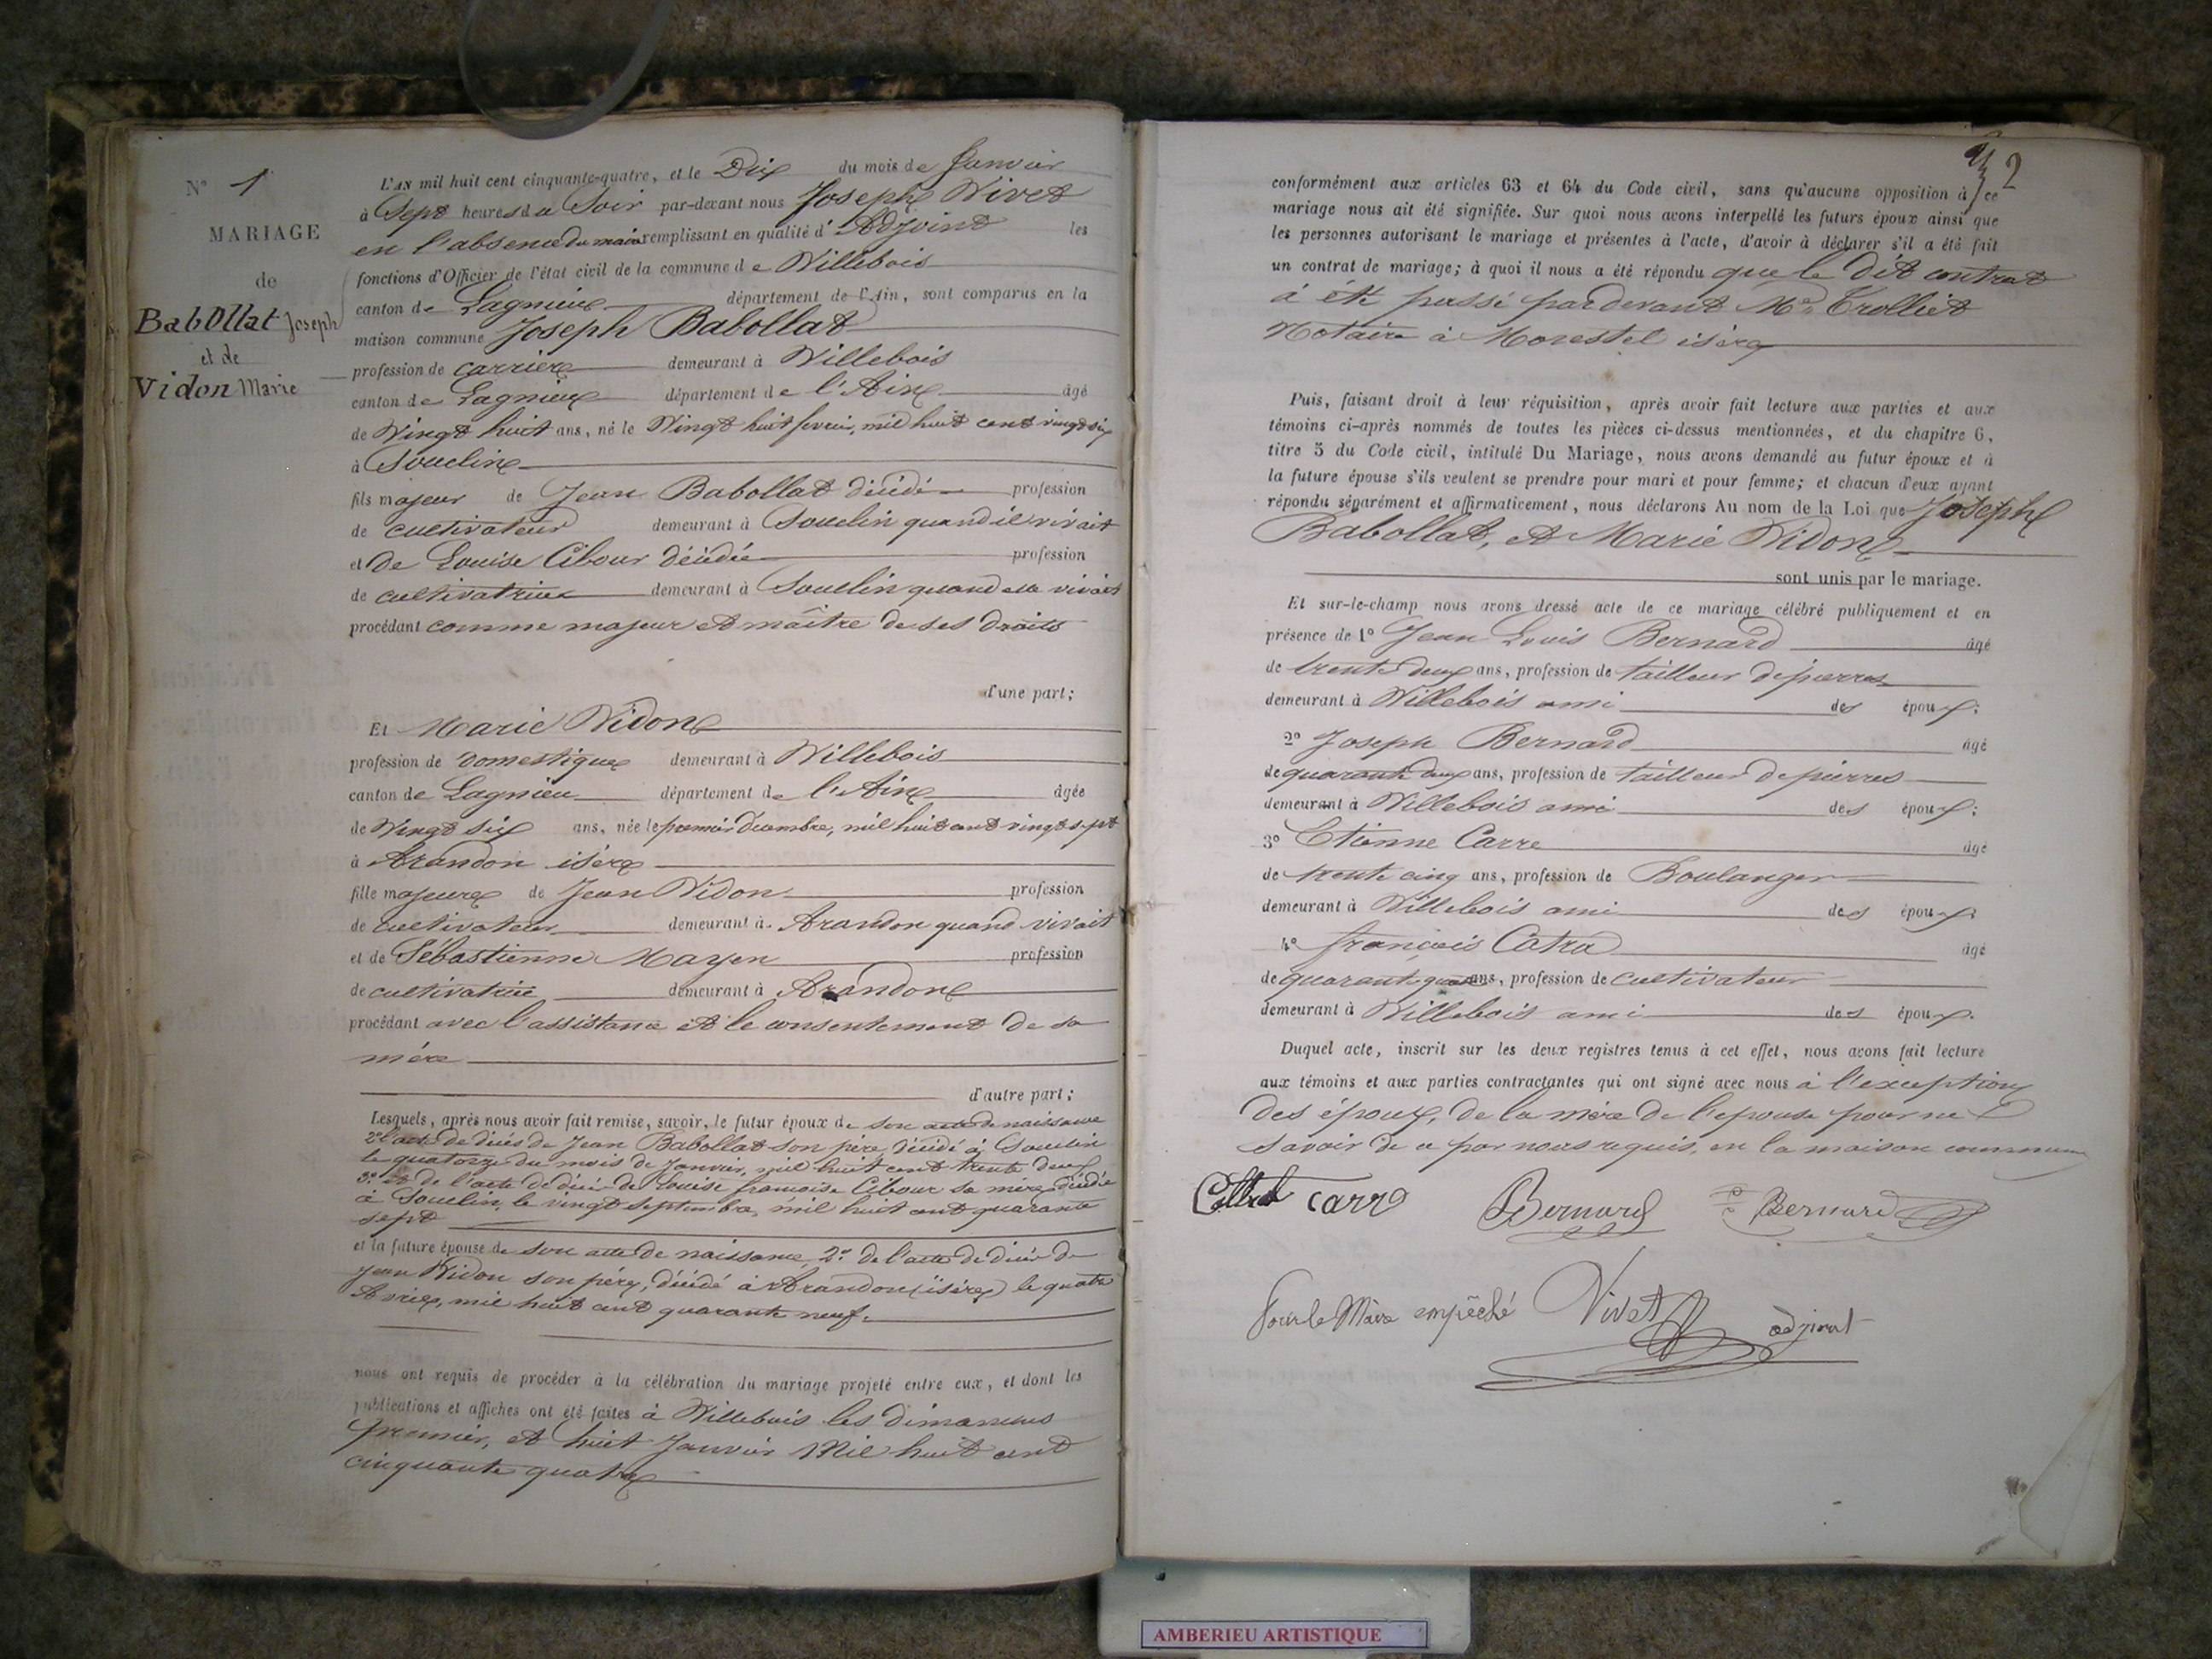 N° 1
MARIAGE
de
Babollat Joseph
et de
Vidon Marie
L'AN mil huit cent cinquante-quatre, et le Dix du mois de Janvier
à Sept heures du Soir par-devant nous Joseph Vivet
en l'absence du maire remplissant en qualité d'Adjoint les
fonctions d'Officier de l'état civil de la commune de Villebois
canton de Lagnieu département de l'Ain, sont comparus en la
maison commune Joseph Babollat
profession de carrier demeurant à Villebois
canton de Lagnieu département de l'Ain âgé
de Vingt huit ans, né le Vingt huit fevrier, mil huit cent vingt six
à Souclin
fils majeur de Jean Babollat décédé profession
de cultivateur demeurant à Souclin quand il vivait
et de Louise Cibour décédée profession
de cultivatrice demeurant à Souclin quand elle vivait
procédant comme majeur et maître de ses droits
d'une part;
Et Marie Vidon
profession de domestique demeurant à Villebois
canton de Lagnieu département de l'Ain âgée
de Vingt six ans, née le premier décembre, mil huit cent vingt sept
à Arandon isère
fille majeure de Jean Vidon profession
de cultivateur demeurant à Arandon quand vivait
et de Sébastienne Mayen profession
de cultivatrice demeurant à Arandon
procédant avec l'assistance et le consentement de sa
mère
d'autre part;
Lesquels, après nous avoir fait remise, savoir, le futur époux de son acte de naissance
2° l'acte de décès de Jean Babollat son père, décédé à Souclin
le quatorze du mois de Janvier, mil huit cent trente deux
3° et de l'acte de décès de Louise françoise Cibour sa mère décédée
à Souclin, le vingt septembre, mil huit cent quarante
sept
et la future épouse de son acte de naissance, 2° de l'acte de décès de
Jean Vidon son père, décédé à Arandon (isère) le quatre
Avril, mil huit cent quarante neuf.
nous ont requis de procéder à la célébration du mariage projeté entre eux, et dont les
publications et affiches ont été faites à Villebois les dimanches
premier, et huit Janvier Mil huit cent
cinquante quatre
2
conformément aux articles 63 et 64 du Code civil, sans qu'aucune opposition à ce
mariage nous ait été signifiée. Sur quoi nous avons interpellé les futurs époux ainsi que
les personnes autorisant le mariage et présentes à l'acte, d'avoir à déclarer s'il a été fait
un contrat de mariage; à quoi il nous a été répondu que le dit contrat
à été passé pardevant Me Trolliet
Notaire à Morestel isère
Puis, faisant droit à leur réquisition, après avoir fait lecture aux parties et aux
témoins ci-après nommés de toutes les pièces ci-dessus mentionnées, et du chapitre 6,
titre 5 du Code civil, intitulé Du Mariage, nous avons demandé au futur époux et à
la future épouse s'ils veulent se prendre pour mari et pour femme; et chacun d'eux ayant
répondu séparément et affirmativement, nous déclarons Au nom de la Loi que Joseph
Babollat, et Marie Vidon
sont unis par le mariage.
Et sur-le-champ nous avons dressé acte de ce mariage célébré publiquement et en
présence de 1° Jean Louis Bernard âgé
de trente deux ans, profession de tailleur de pierres
demeurant à Villebois ami des époux;
2° Joseph Bernard âgé
de quarante deux ans, profession de tailleur de pierres
demeurant à Villebois ami des époux;
3° Etienne Carre âgé
de trente cinq ans, profession de Boulanger
demeurant à Villebois ami des époux;
4° françois Catra âgé
de quarante ans, profession de cultivateur
demeurant à Villebois ami des époux.
Duquel acte, inscrit sur les deux registres tenus à cet effet, nous avons fait lecture
aux témoins et aux parties contractantes qui ont signé avec nous à l'exception
des époux, de la mère de l'epouse pour ne
savoir de ce par nous requis, en la maison commune
Carre Bernard Bernard
Pour le Maire empêché Vivet adjoint
AMBERIEU ARTISTIQUE